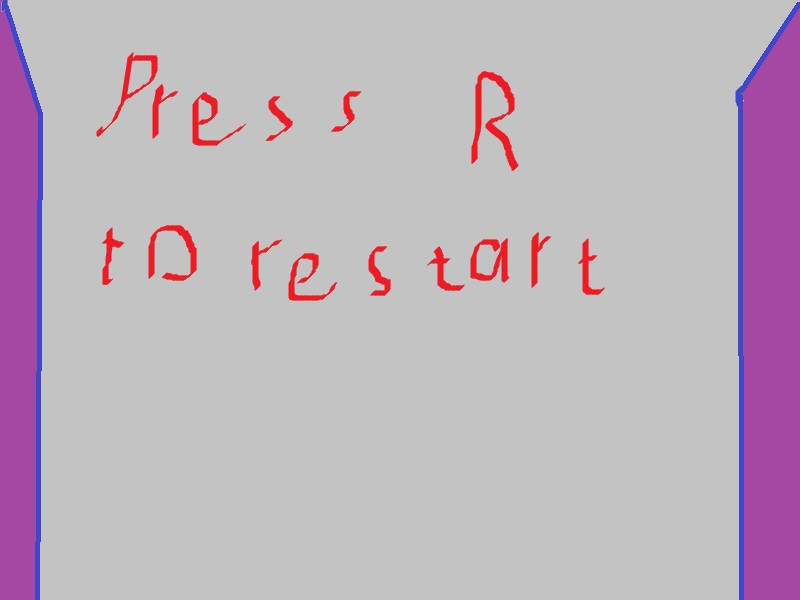 Press R
to restart